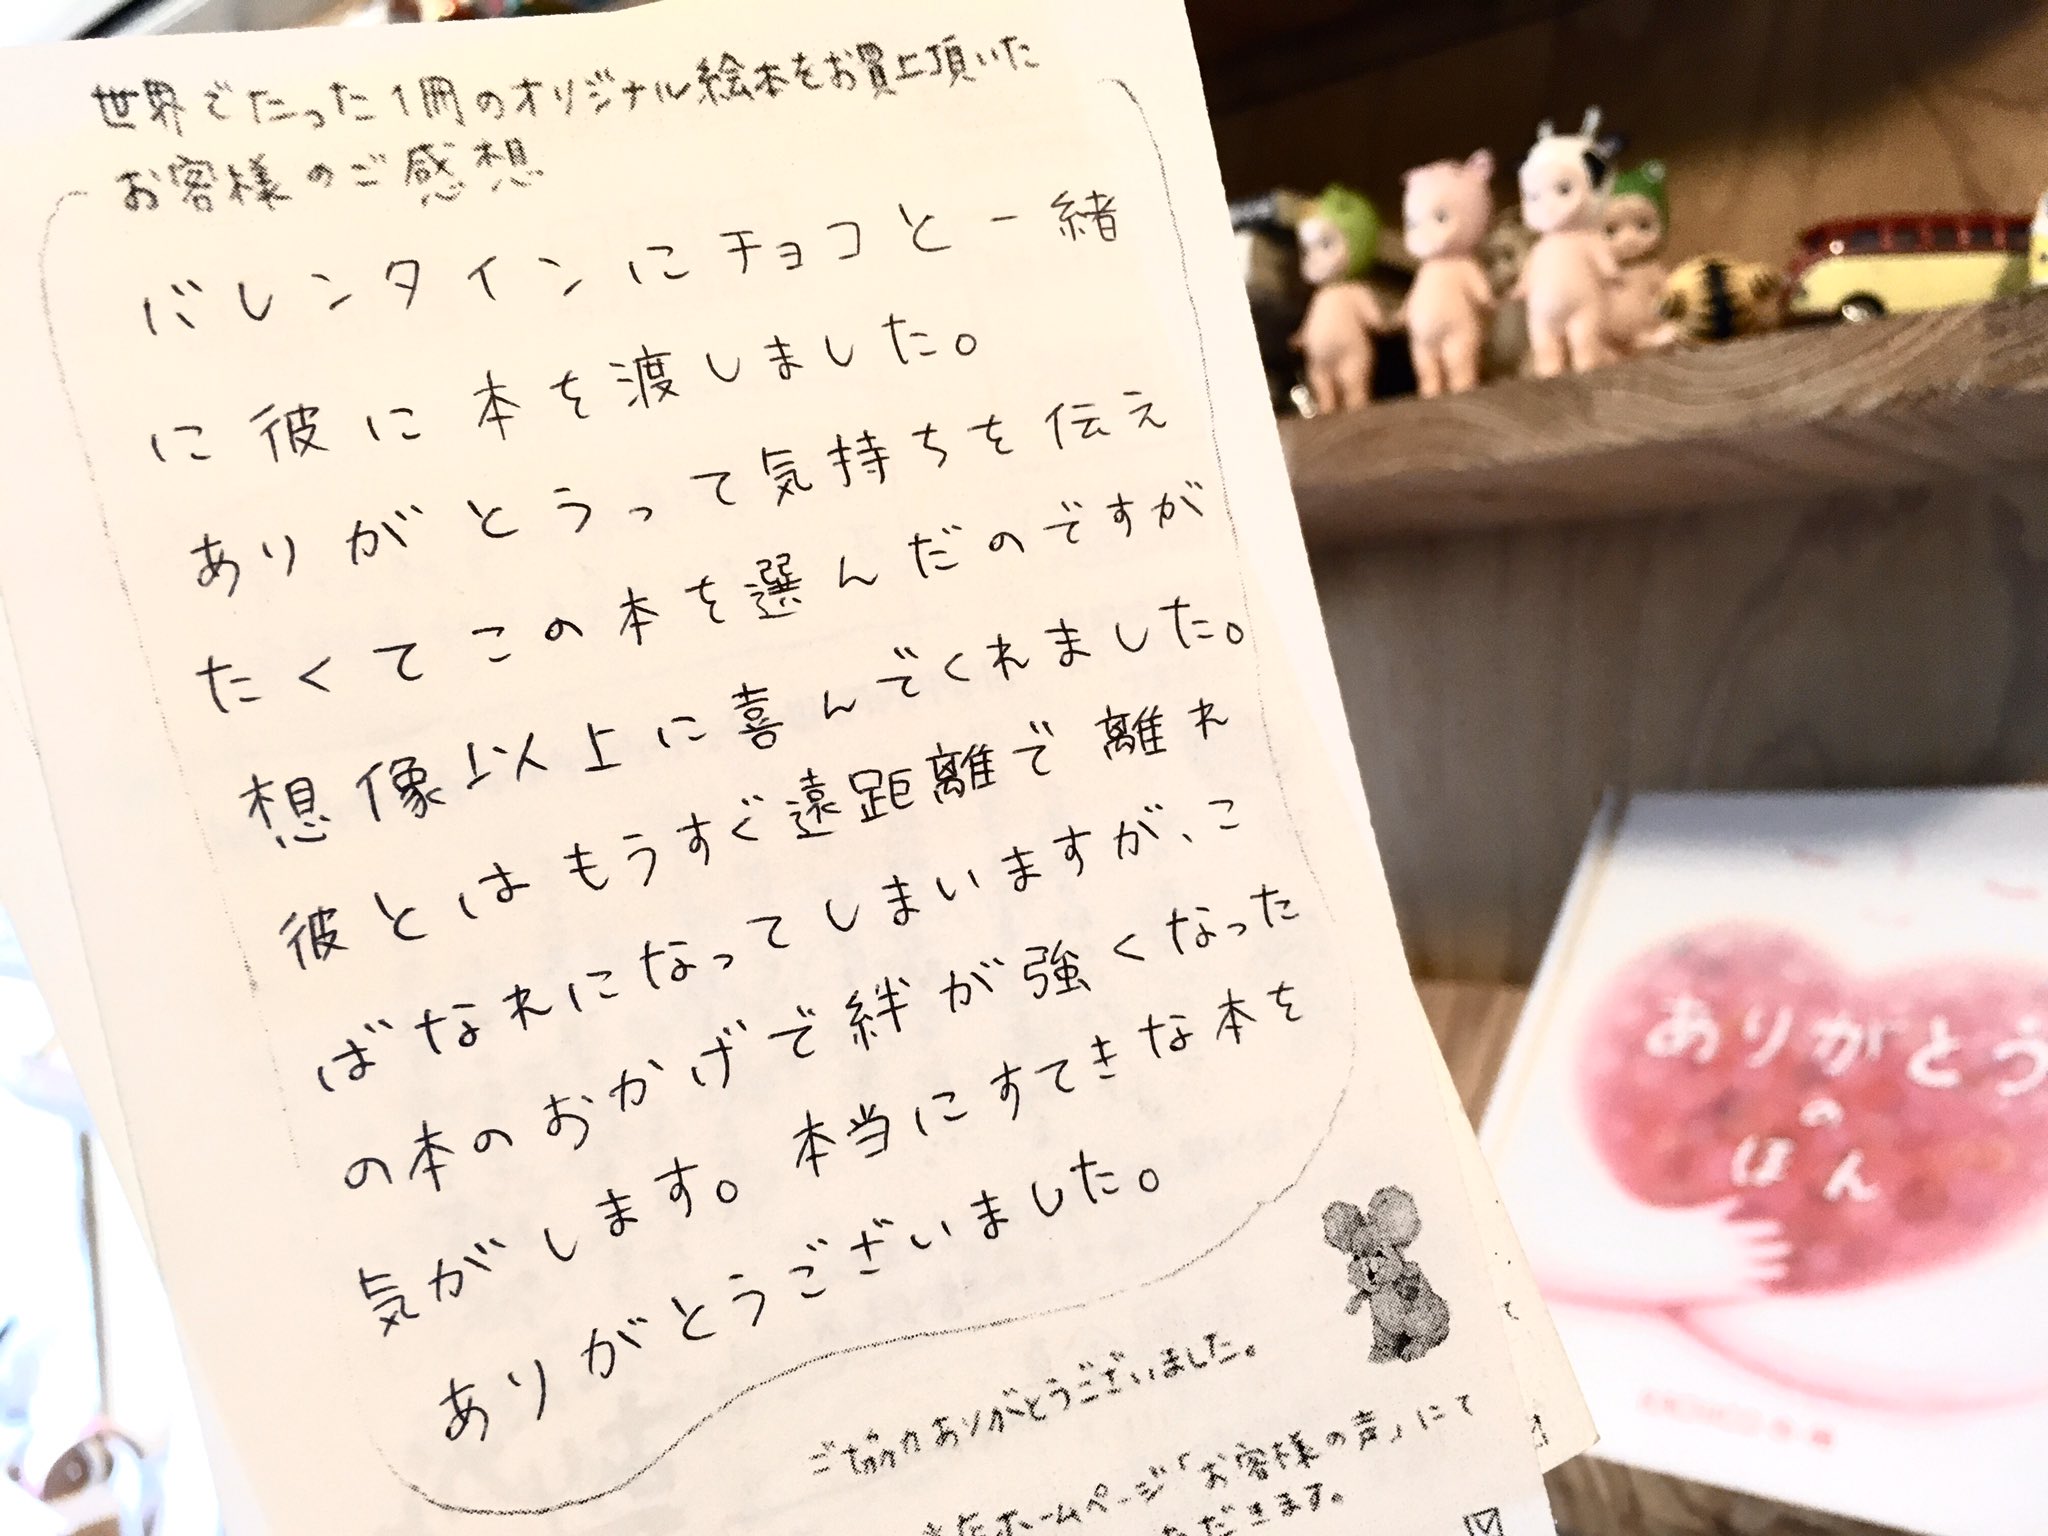 世界でたった1冊のオリジナル絵本をお買上頂いた
お客様のご感想
バレンタインにチョコと一緒
に彼に本を渡しました。
ありがとうって気持ちを伝え
たくてこの本を選んだのですが
想像以上に喜んでくれました。
彼とはもうすぐ遠距離で離れ
ばなれになってしまいますが、こ
の本のおかげで絆が強くなった
気がします。本当にすてきな本を
ありがとうございました。
ご協力ありがとうございました。
ホームページ「お客様の声」にて
ただきます。
ありがとう
の
ほん